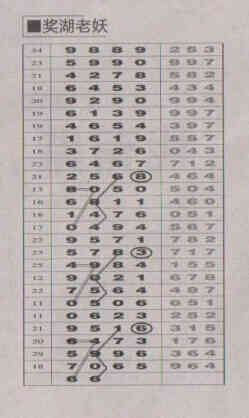 ■奖湖老妖
34 9 8 8 9 2 5 3
23 5 9 9 0 9 9 7
21 4 2 7 8 5 8 2
18 6 4 5 3 4 3 4
20 9 2 9 0 9 9 4
19 6 1 3 9 9 9 7
19 4 6 5 4 3 9 7
17 1 6 1 9 5 5 7
18 3 7 2 6 0 4 3
23 6 4 6 7 7 1 2
21 2 5 6 8 4 6 4
13 8 0 5 0 5 0 4
16 6 8 1 1 4 6 0
18 1 4 7 6 0 5 1
17 0 4 9 4 5 6 7
22 9 5 7 1 7 8 2
23 5 7 8 3 7 1 7
25 4 9 8 4 1 5 5
12 9 6 2 1 6 7 8
22 7 5 6 4 4 9 7
11 0 5 0 6 6 5 1
11 0 6 2 3 2 5 2
21 9 5 1 6 3 1 5
20 6 4 7 3 1 7 6
29 5 9 9 6 3 6 4
18 7 0 6 5 9 6 4
6 6